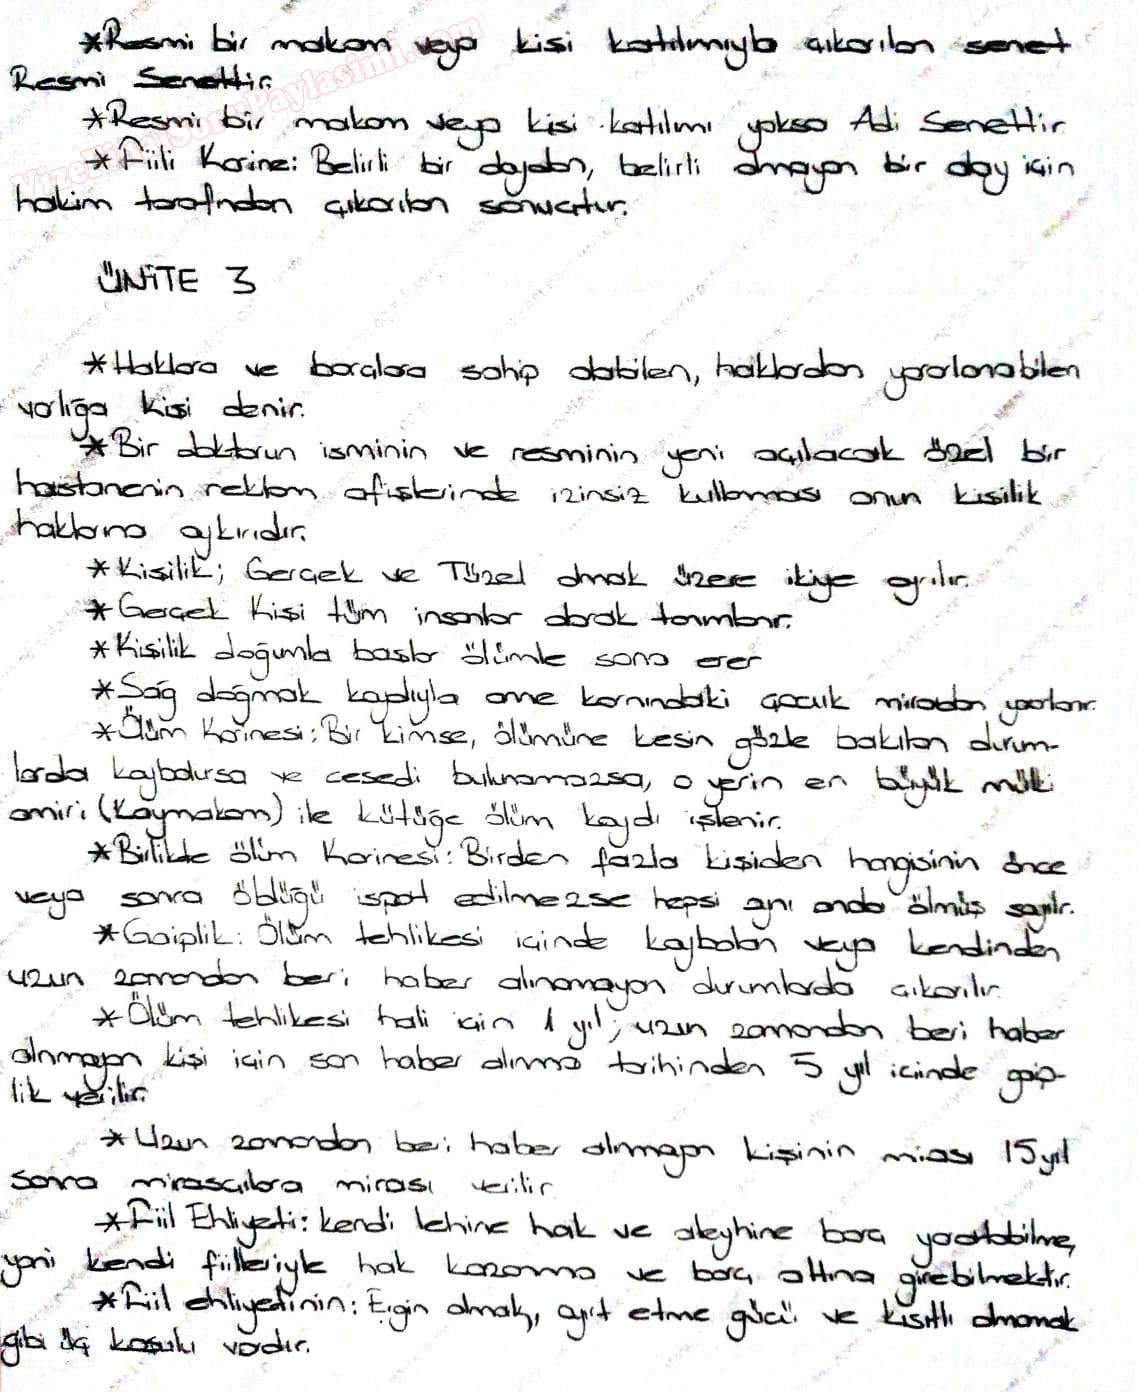 *Resmi bir makam veya kişi katılımıyla çıkarılan senet
Resmi Senettir.
*Resmi bir makam veya kişi katılımı yoksa Adi Senettir
*Fiili Karine: Belirli bir olaydan, belirli olmayan bir olay için
hakim tarafından çıkarılan sonuçtur.
ÜNİTE 3
*Haklara ve borçlara sahip olabilen, haklardan yararlanabilen
varlığa kişi denir.
*Bir doktorun isminin ve resminin yeni açılacak özel bir
hastanenin reklam afişlerinde izinsiz kullanması onun kişilik
haklarına aykırıdır.
*Kişilik; Gerçek ve Tüzel olmak üzere ikiye ayrılır.
*Gerçek Kişi tüm insanlar olarak tanımlanır.
*Kişilik doğumla başlar ölümle sona erer
*Sağ doğmak kaydıyla anne karnındaki çocuk mirastan yararlanır.
*Ölüm Karinesi: Bir kimse, ölümüne kesin gözle bakılan durum-
larda kaybolursa ve cesedi bulunamazsa, o yerin en büyük mülki
amiri (Kaymakam) ile kütüğe ölüm kaydı işlenir.
*Birlikte ölüm Karinesi: Birden fazla kişiden hangisinin önce
veya sonra öldüğü ispat edilmezse hepsi aynı anda ölmüş sayılır.
*Gaiplik: Ölüm tehlikesi içinde kaybolan veya kendinden
uzun zamandan beri haber alınamayan durumlarda çıkarılır.
*Ölüm tehlikesi hali için 1 yıl; uzun zamandan beri haber
alınmayan kişi için son haber alınma tarihinden 5 yıl içinde gaip-
lik verilir.
*Uzun zamandan beri haber alınmayan kişinin mirası 15 yıl
sonra mirasçılara mirası verilir
*Fiil Ehliyeti: kendi lehine hak ve aleyhine borç yaratabilme,
yani kendi fiilleriyle hak kazanma ve borç altına girebilmektir.
*Fiil ehliyetinin: Ergin olmak, ayırt etme gücü ve kısıtlı olmamak
gibi üç koşulu vardır.